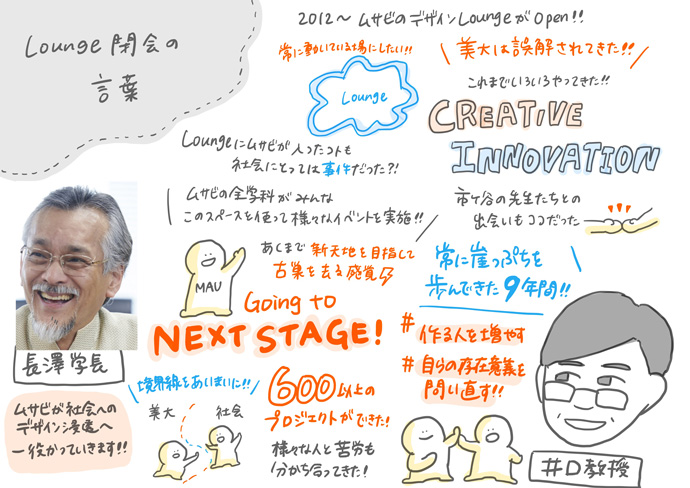 Lounge 閉会の
言葉
2012〜 ムサビのデザインLoungeがOpen!!
常に動いている場にしたい!!
Lounge
美大は誤解されてきた!!
これまでいろいろやってきた!!
CREATIVE
INNOVATION
Loungeにムサビが入ったコトも
社会にとっては事件だった?!
ムサビの全学科がみんな
このスペースを使って様々なイベントを実施!!
市ヶ谷の先生たちとの
出会いもココだった
MAU
あくまで新天地を目指して
古巣を去る感覚
Going to
NEXT STAGE!
常に崖っぷちを
歩んできた9年間!!
#作る人を増やす
#自らの存在意義を
問い直す!!
長澤学長
ムサビが社会への
デザイン浸透へ
一役かっていきます!!
境界線をあいまいに!!
美大
社会
600以上の
プロジェクトができた!
様々な人と苦労も
分かち合ってきた!
#D教授